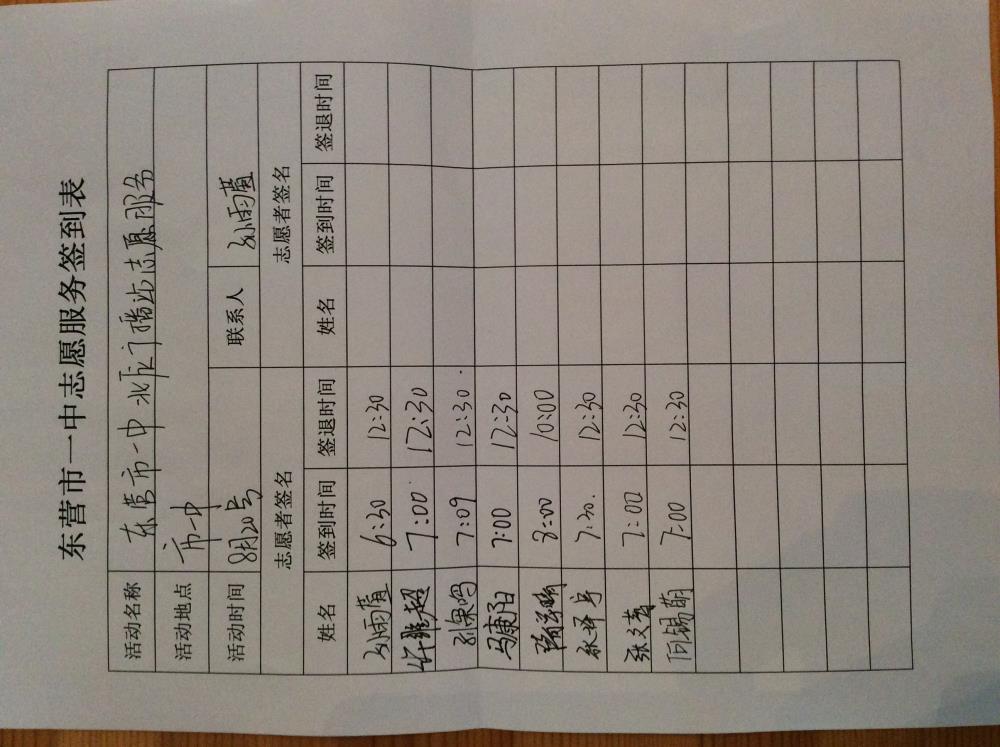 东营市一中志愿服务签到表
活动名称 东营市一中北门播站志愿服务
活动地点 市一中
活动时间 8月20号 联系人 孙雨菡
志愿者签名 志愿者签名
姓名 签到时间 签退时间 姓名 签到时间 签退时间
孙雨菡 6:30 12:30
超 7:00 12:30
7:09 12:30.
马康阳 7:00 12:30
8:00 10:00
7:30. 12:30
张文 7:00 12:30
7:00 12:30